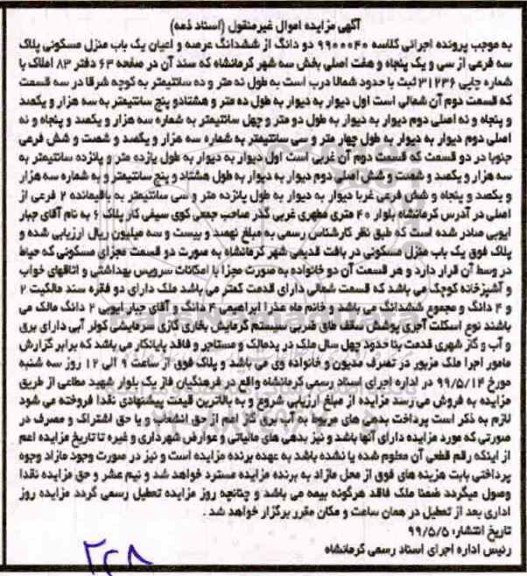 آگهی مزایده اموال غیرمنقول (اسناد ذمه)
به موجب پرونده اجرائی کلاسه ۹۹۰۰۰۴۰ دو دانگ از ششدانگ عرصه و اعیان یک باب منزل مسکونی پلاک
سه فرعی از سی و یک پنجاه و هفت اصلی بخش سه شهر کرمانشاه که سند آن در صفحه ۶۳ دفتر ۸۳ املاک با
شماره چاپی ۳۱۲۳۶ ثبت با حدود شمالا درب است به طول نه متر و ده سانتیمتر به کوچه شرقا در سه قسمت
که قسمت دوم آن شمالی است اول دیوار به دیوار به طول ده متر و هشتادو پنج سانتیمتر به سه هزار و یکصد
و پنجاه و نه اصلی دوم دیوار به دیوار به طول دو متر و چهل سانتیمتر به شماره سه هزار و یکصد و پنجاه و نه
اصلی دوم دیوار به دیوار به طول چهار متر و سی سانتیمتر به شماره سه هزار و یکصد و شصت و شش فرعی
جنوبا در دو قسمت که قسمت دوم آن غربی است اول دیوار به دیوار به طول یازده متر و پانزده سانتیمتر به
سه هزار و یکصد و شصت و شش اصلی دوم دیوار به دیوار به طول هشتاد و پنج سانتیمتر به شماره سه هزار
و یکصد و پنجاه و شش فرعی غربا دیوار به دیوار به طول پانزده متر و سی سانتیمتر به باقیمانده ۲ فرعی از
اصلی در آدرس کرمانشاه بلوار ۴۰ متری مطهری غربی گذر صاحب جمعی کوی سیفی کار پلاک ۶ به نام آقای جبار
ایوبی صادر شده است که طبق نظر کارشناس رسمی به مبلغ نهصد و بیست و سه میلیون ریال ارزیابی شده و
پلاک فوق یک باب منزل مسکونی در بافت قدیمی شهر کرمانشاه به صورت دو قسمت مجزای مسکونی که حیاط
در وسط آن قرار دارد و هر قسمت آن دو خانواده به صورت مجزا با امکانات سرویس بهداشتی و اتاقهای خواب
و آشپزخانه کوچک می باشد که قسمت شمالی دارای قدمت کمتر می باشد ملک دارای دو فقره سند مالکیت ۲
و ۴ دانگ و مجموع ششدانگ می باشد و خانم ماه عذرا ابراهیمی ۴ دانگ و آقای جبار ایوبی ۲ دانگ مالک می
باشند نوع اسکلت آجری پوشش سقف طاق ضربی سیستم گرمایش بخاری گازی سرمایشی کولر آبی دارای برق
و آب و گاز شهری قدمت بنا حدود چهل سال ملک در یدمالک و مستاجر و فاقد پایانکار می باشد که برابر گزارش
مامور اجرا ملک مزبور در تصرف مدیون و خانواده وی می باشد و پلاک فوق از ساعت ۹ الی ۱۲ روز سه شنبه
مورخ ۹۹/۵/۱۴ در اداره اجرای اسناد رسمی کرمانشاه واقع در فرهنگیان فاز یک بلوار شهید مطاعی از طریق
مزایده به فروش می رسد مزایده از مبلغ ارزیابی شروع و به بالاترین قیمت پیشنهادی نقدا فروخته می شود
لازم به ذکر است پرداخت بدهی های مربوط به آب برق گاز اعم از حق انشعاب و یا حق اشتراک و مصرف در
صورتی که مورد مزایده دارای آنها باشد و نیز بدهی های مالیاتی و عوارض شهرداری و غیره تا تاریخ مزایده اعم
از اینکه رقم قطعی آن معلوم شده یا نشده باشد به عهده برنده مزایده است و نیز در صورت وجود مازاد وجوه
پرداختی بابت هزینه های فوق از محل مازاد به برنده مزایده مسترد خواهد شد و نیم عشر و حق مزایده نقدا
وصول میگردد ضمنا ملک فاقد هرگونه بیمه می باشد و چنانچه روز مزایده تعطیل رسمی گردد مزایده روز
اداری بعد از تعطیل در همان ساعت و مکان مقرر برگزار خواهد شد .
تاریخ انتشار: ۹۹/۵/۵
رئیس اداره اجرای اسناد رسمی کرمانشاه
۲۲۸